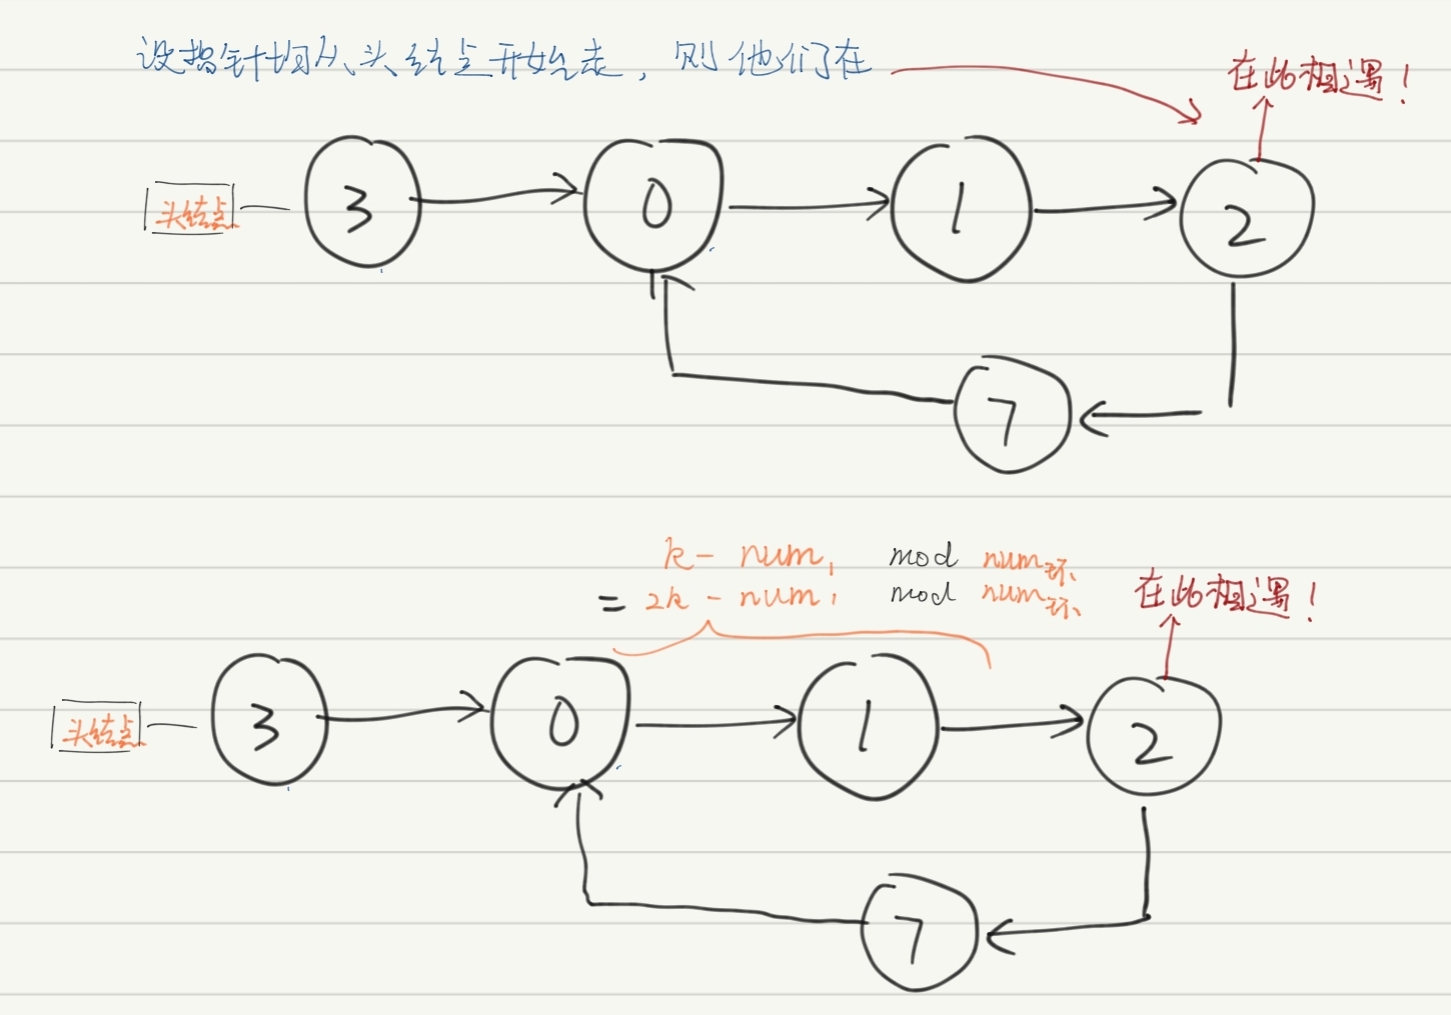 设指针均从头结点开始走，则他们在
在此相遇！
头结点 3 0 1 2
7
k - num₁ mod num环
= 2k - num₁ mod num环
在此相遇！
头结点 3 0 1 2
7